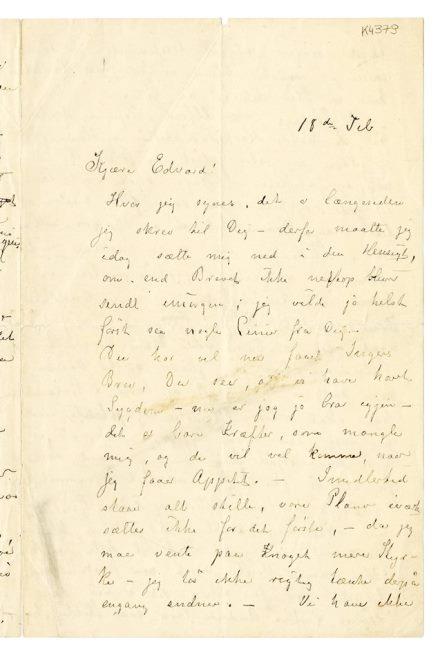 K4379
18de Feb
Kjære Edvard!
Hvor jeg synes, det er længesiden
jeg skrev til Dig – derfor maatte jeg
idag sætte mig ned i den Hensigt,
om end Brevet ikke netop blev
sendt imorgen; jeg vilde jo helst
først see nogle Linier fra Dig.
Du har vel nu faaet Ingers
Brev, Du seer, at vi have havt
Sygdom – nu er jeg jo bra igjen –
det er bare Kræfter, som mangle
mig, og de vil vel komme, naar
jeg faaer Appetit. – Imidlertid
staae alt stille, vore Planer
sættes ikke for det første, – da jeg
maa vente paa noget mere Styr-
ke – jeg tør ikke rigtig tænke derpå
engang endnu. – Vi have ikke